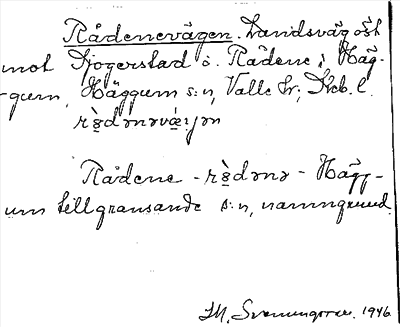 Rådenevägen. Landsväg öst
mot Sjogerstad o. Rådene i Häg-
gum, Häggum s:n, Valle hr; Skb. l.
rɷ̀dənəvæ:jən
Rådene - rɷ̀dənə - Hägg-
um tillgränsande s:n, namngrund.
M. Svenungsson. 1946